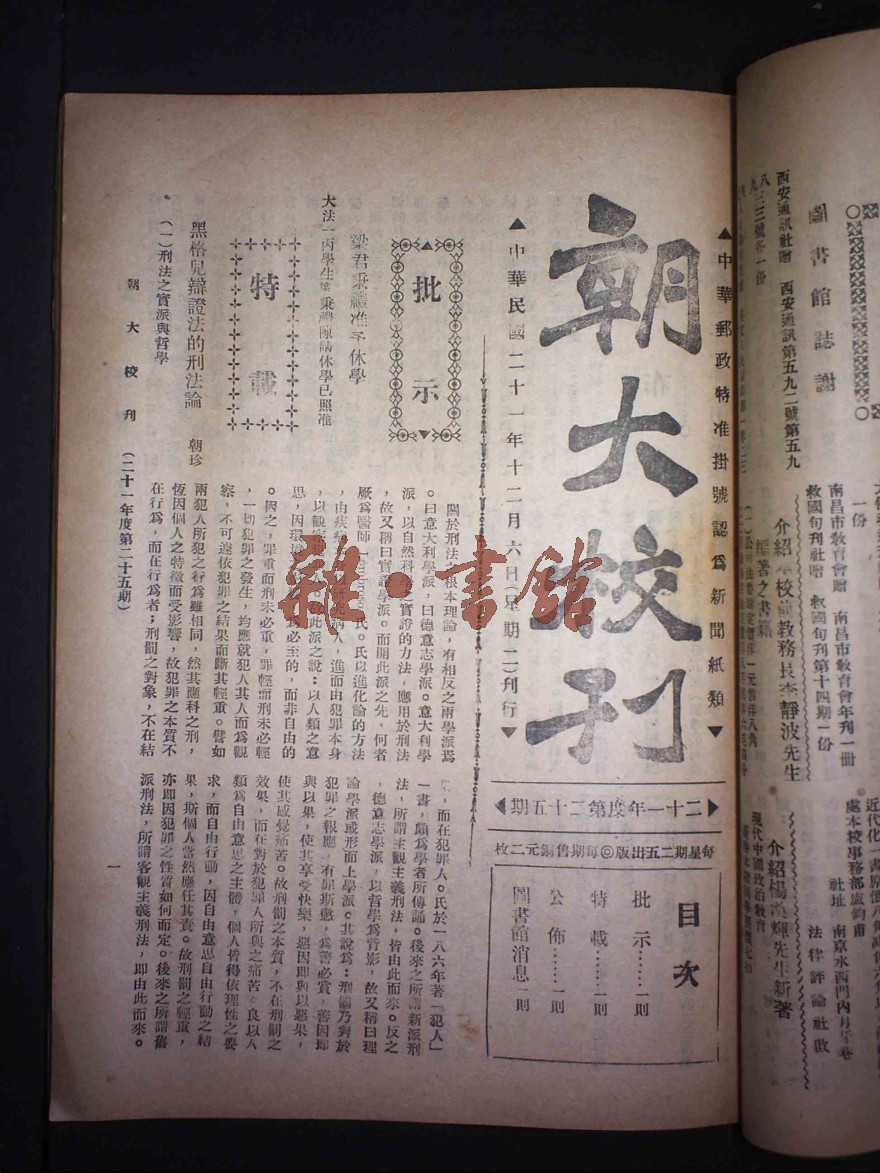 ▲中華郵政特准掛號認爲新聞紙類▼
朝大校刊
▲中華民國二十一年十二月六日(星期二)刊行▼
▶二十一年度第二十五期◀
每星期二五出版◎每期售銅元二枚
目次
批示……一則
特載……一則
公佈……一則
圖書館消息一則
▲批示▼
梁君秉禮准予休學
大法一丙學生梁秉禮陳請休學已照准
特載
黑格兒辯證法的刑法論 朝珍
(一)刑法之實派與哲學
關於刑法之根本理論,有相反之兩學派焉
。曰意大利學派,曰德意志學派。意大利學
派,以自然科學之實證的方法,應用於刑法
,故又稱曰實證學派。而開此派之先,何者
厥爲醫師 氏。氏以進化論的方法
,由疾病 病人,進而由犯罪本身
,以觀 犯人。故此派之說:以人類之意
思,因環境 爲必至的,而非自由的
。因之,罪重而刑未必重,罪輕而刑未必輕
,一切犯罪之發生,均應就犯人其人而爲觀
察,不可遽依犯罪之結果而斷其輕重。譬如
兩犯人所犯之行爲雖相同,然其應科之刑,
恆因個人之特徵而受影響,故犯罪之本質不
在行爲,而在行爲者;刑罰之對象,不在結
果,而在犯罪人。氏於一八六年著「犯人」
一書,頗爲學者所傳誦。後來之所謂新派刑
法,所謂主觀主義刑法,皆由此而來。反之
,德意志學派,以哲學爲背影,故又稱曰理
論學派或形而上學派。其說爲:刑罰乃對於
犯罪之報應,有罪斯懲,爲善必賞,善因即
與以果,使其享受快樂,惡因即與以惡果,
使其感覺痛苦。故刑罰之本質,不在刑罰之
效果,而在對於犯罪人所與之痛苦。良以人
類爲自由意思之主體,個人皆得依理性之要
求,而自由行動,因自由意思自由行動之結
果,斯個人當然應任其責。故刑罰之輕重,
亦即因犯罪之性質如何而定。後來之所謂舊
派刑法,所謂客觀主義刑法,即由此而來。
朝大校刊 (二十一年度第二十五期)
一
圖書館誌謝
西安通訊社贈 西安通訊第五九二號第五九
八 三三號各一份
南昌市敎育會贈 南昌市敎育會年刊一冊
救國旬刊社贈 救國旬刊第十四期一份
一份
介紹本校 敎務長李靜波先生
著之書籍
介紹楊 輝先生新著
現代中國政治敎育
處本校事務部盧鈞甫
社址 南京水西門內月牙巷
法律評論社啟
雜·書館